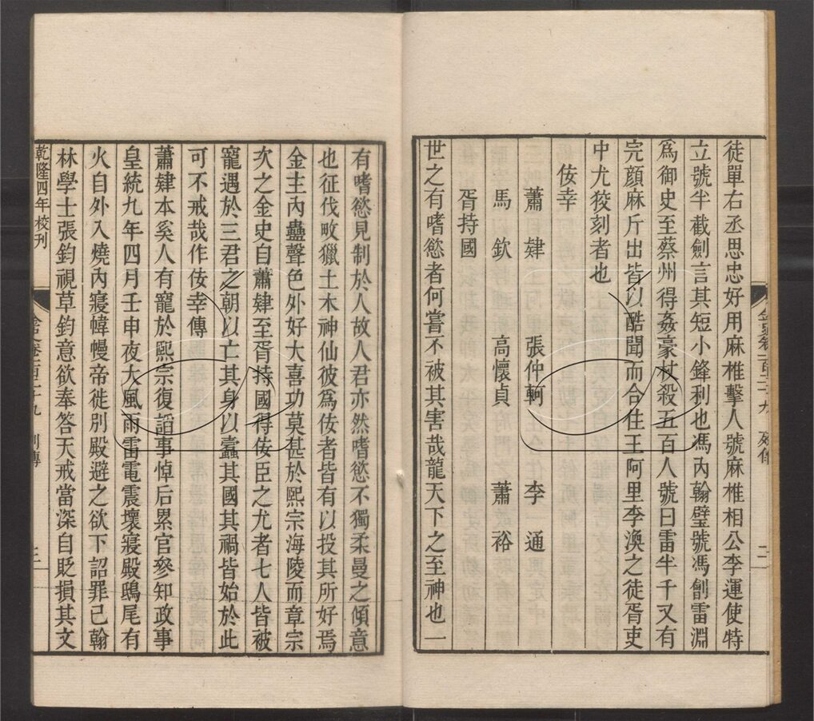 徒單右丞思忠好用麻椎擊人號麻椎相公李運使特
立號半截劍言其短小鋒利也馮內翰璧號馮劊雷淵
爲御史至蔡州得姦豪杖殺五百人號曰雷半千又有
完顏麻斤出皆以酷聞而合住王阿里李渙之徒胥吏
中尤狡刻者也
佞幸
蕭肄 張仲軻 李通
馬欽 高懷貞 蕭裕
胥持國
世之有嗜慾者何嘗不被其害哉龍天下之至神也一
金史卷一百二十九 列傳 二
有嗜慾見制於人故人君亦然嗜慾不獨柔曼之傾意
也征伐畋獵土木神仙彼爲佞者皆有以投其所好焉
金主內蠱聲色外好大喜功莫甚於熙宗海陵而章宗
次之金史自蕭肄至胥持國得佞臣之尤者七人皆被
寵遇於三君之朝以亡其身以蠹其國其禍皆始於此
可不戒哉作佞幸傳
蕭肄本奚人有寵於熙宗復諂事悼后累官參知政事
皇統九年四月壬申夜大風雨雷電震壞寢殿鴟尾有
火自外入燒內寢幃幔帝徙別殿避之欲下詔罪己翰
林學士張鈞視草鈞意欲奉答天戒當深自貶損其文
乾隆四年校刊
金史卷一百二十九 列傳 三